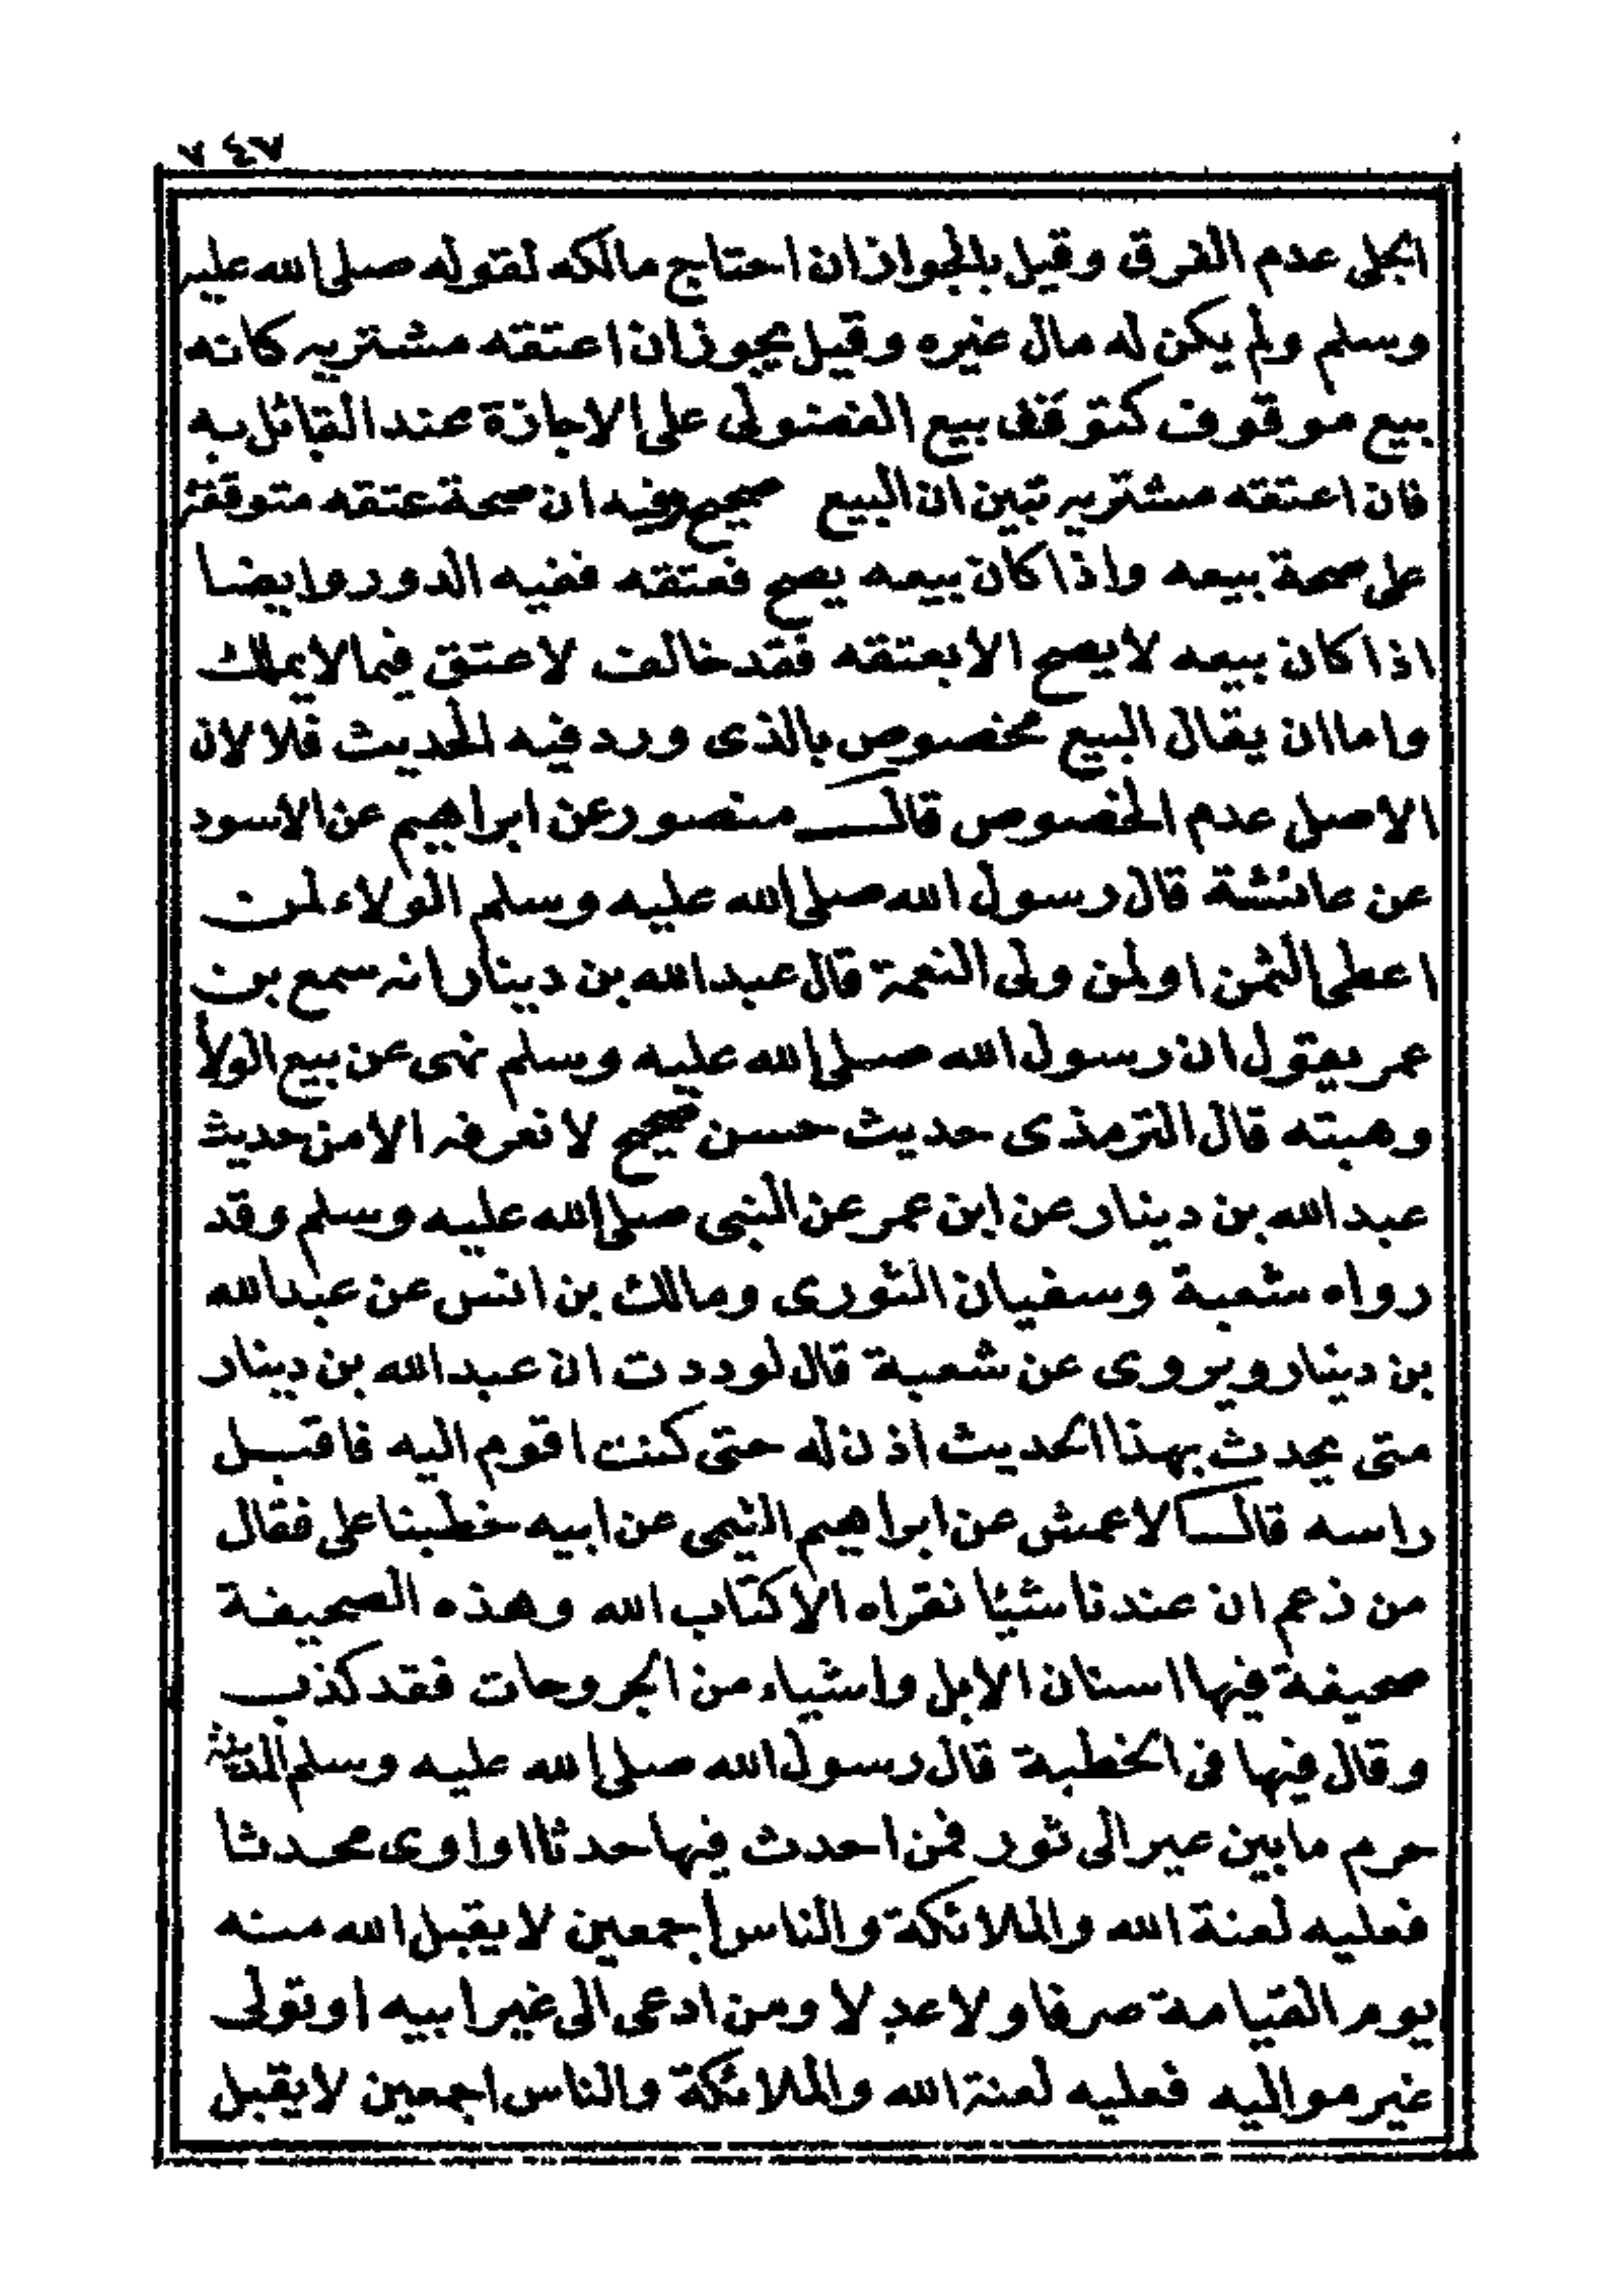 ٧٤٧
الجلى عدم الفرق وقيل بالجواز ان احتاج مالكه لقوله صلى الله عليه
وسلم ولم يكن له مال غيره وقيل يجوز ان اعتقه مشتريه كانه
بيع موقوف كتوقف بيع الفضولى على الاجازة عند القائل به
فان اعتقه مشتريه تبين ان البيع صحيح وفيه ان صحة عتقه متوقفة
على صحة بيعه واذا كان بيعه يصح فعتقه ففيه الدور وايضا
اذا كان بيعه لا يصح الا بعتقه فقد خالف لا عتق فيما لا يملك
واما ان يقال البيع مخصوص بالذى ورد فيه الحديث فلا لان
الاصل عدم الخصوص قال منصور عن ابراهيم عن الاسود
عن عائشة قال رسول الله صلى الله عليه وسلم الولاء لمن
اعطى الثمن او لمن ولى النعمة قال عبد الله بن دينار انه سمع بن
عمر يقول ان رسول الله صلى الله عليه وسلم نهى عن بيع الولأ
وهبته قال الترمذى حديث حسن صحيح لا نعرفه الا من حديث
عبد الله بن دينار عن ابن عمر عن النبى صلى الله عليه وسلم وقد
رواه شعبة وسفيان الثورى ومالك بن انس عن عبد الله
بن دينار ويروى عن شعبة قال لوددت ان عبد الله بن دينار
متى يحدث بهذا الحديث اذن له حتى كنت اقوم اليه فاقبل
راسه قال الاعمش عن ابراهيم التيمى عن ابيه خطبنا على فقال
من زعم ان عندنا شيئا نقراه الا كتاب الله وهذه الصحيفة
صحيفة فيها اسنان الابل واشياء من الجروحات فقد كذب
وقال فيها فى الخطبة قال رسول الله صلى الله عليه وسلم المدينة
حرم ما بين عير الى ثور فمن احدث فيها حدثا او اوى محدثا
فعليه لعنة الله والملائكة والناس اجمعين لا يقبل الله منه
يوم القيامة صرفا ولا عدلا ومن ادعى الى غير ابيه او تولى
غير مواليه فعليه لعنة الله والملائكة والناس اجمعين لا يقبل